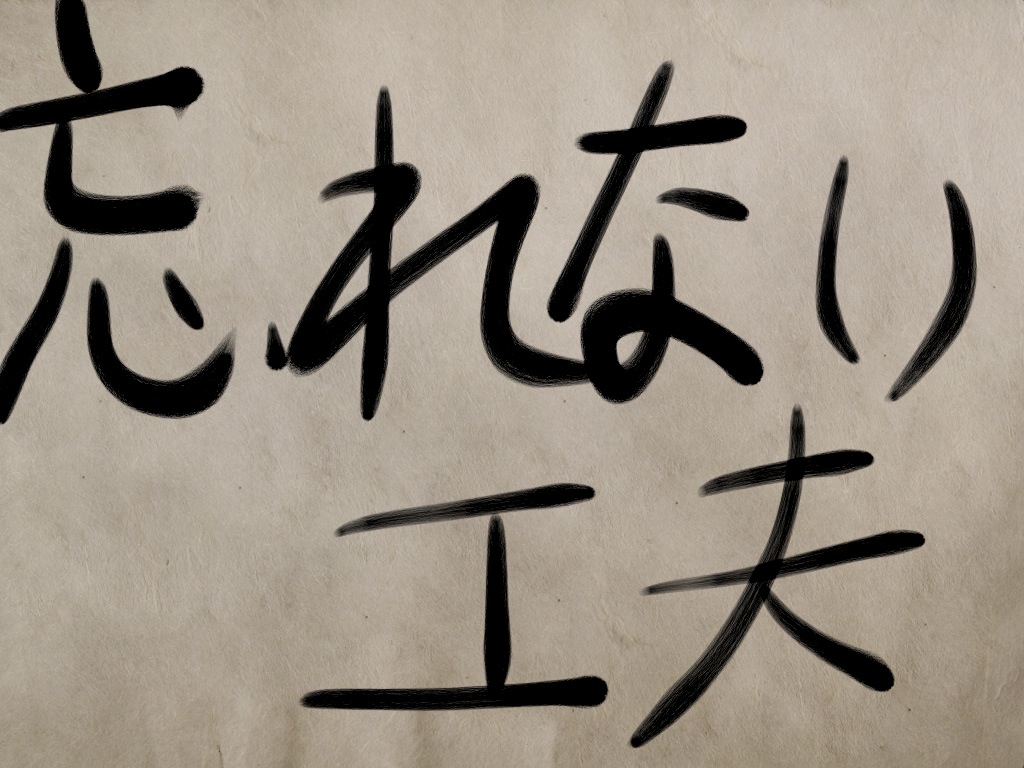 忘れない
工夫